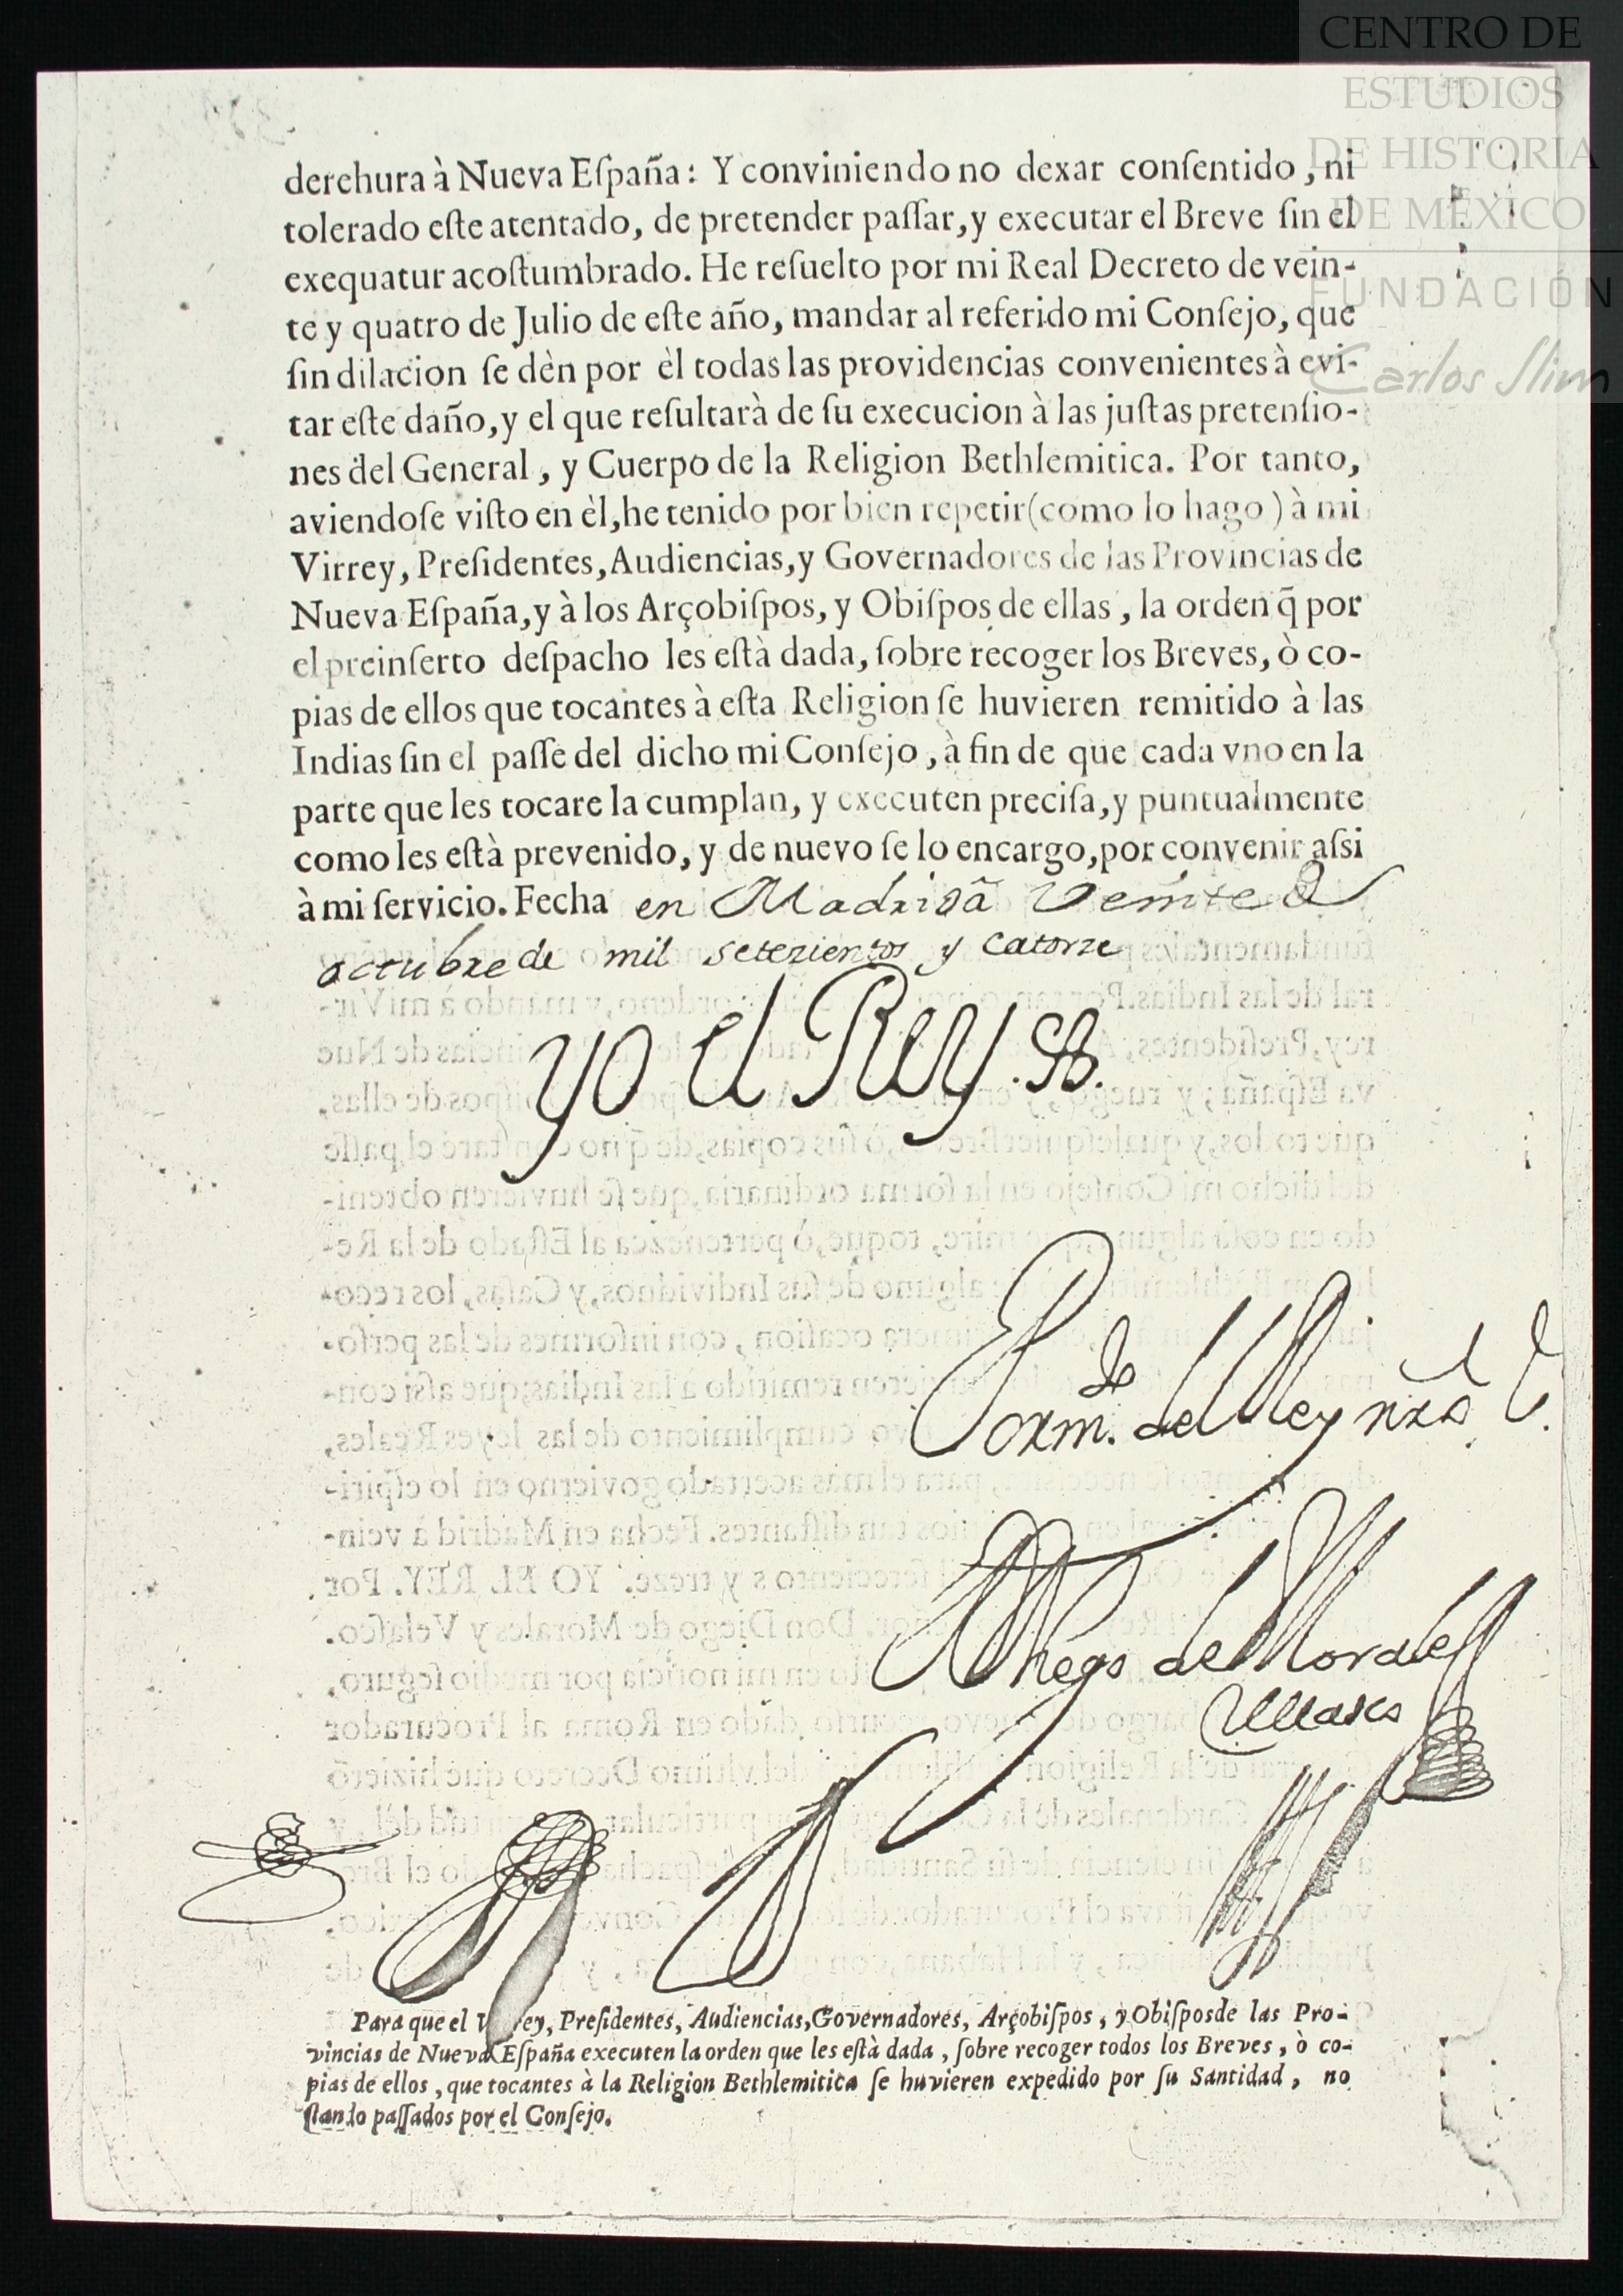 CENTRO DE
ESTUDIOS
DE HISTORIA
DE MÉXICO
FUNDACIÓN
Carlos Slim
derechura à Nueva Eſpaña: Y conviniendo no dexar conſentido, ni
tolerado eſte atentado, de pretender paſſar, y executar el Breve ſin el
exequatur acoſtumbrado. He reſuelto por mi Real Decreto de vein-
te y quatro de Julio de eſte año, mandar al referido mi Conſejo, que
ſin dilacion ſe dèn por èl todas las providencias convenientes à evi-
tar eſte daño, y el que reſultarà de ſu execucion à las juſtas pretenſio-
nes del General, y Cuerpo de la Religion Bethlemitica. Por tanto,
aviendoſe viſto en èl, he tenido por bien repetir (como lo hago) à mi
Virrey, Preſidentes, Audiencias, y Governadores de las Provincias de
Nueva Eſpaña, y à los Arçobiſpos, y Obiſpos de ellas, la orden q̃ por
el preinſerto deſpacho les eſtà dada, ſobre recoger los Breves, ò co-
pias de ellos que tocantes à eſta Religion ſe huvieren remitido à las
Indias ſin el paſſe del dicho mi Conſejo, à fin de que cada vno en la
parte que les tocare la cumplan, y executen preciſa, y puntualmente
como les eſtà prevenido, y de nuevo ſe lo encargo, por convenir aſsi
à mi ſervicio. Fecha en Madrid à Veinte de
octubre de mil setezientos y Catorze
yo el Rey
Por m.do del Rey nro S.
Diego de Morales
Velasco
Para que el Virrey, Preſidentes, Audiencias, Governadores, Arçobiſpos, y Obiſpos de las Pro-
vincias de Nueva Eſpaña executen la orden que les eſtà dada, ſobre recoger todos los Breves, ò co-
pias de ellos, que tocantes à la Religion Bethlemitica ſe huvieren expedido por ſu Santidad, no
ſtando paſſados por el Conſejo.